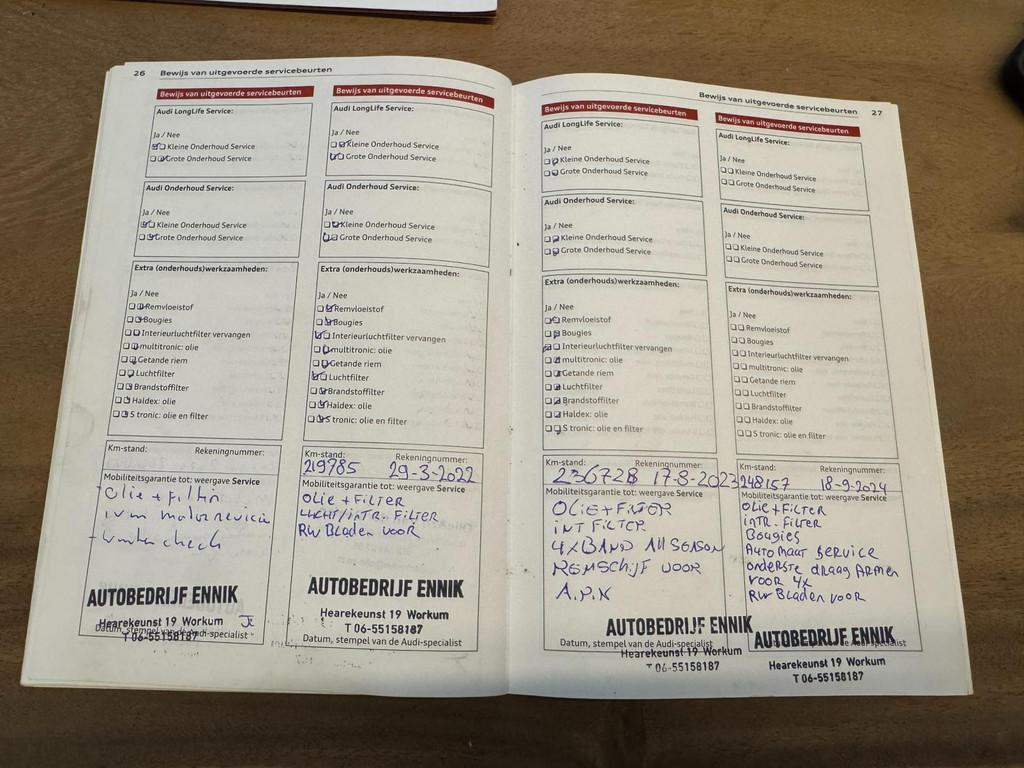 26 Bewijs van uitgevoerde servicebeurten
Bewijs van uitgevoerde servicebeurten
Audi LongLife Service:
Ja / Nee
Kleine Onderhoud Service
Grote Onderhoud Service
Audi Onderhoud Service:
Ja / Nee
Kleine Onderhoud Service
Grote Onderhoud Service
Extra (onderhouds)werkzaamheden:
Ja / Nee
Remvloeistof
Bougies
Interieurluchtfilter vervangen
multitronic: olie
Getande riem
Luchtfilter
Brandstoffilter
Haldex: olie
S tronic: olie en filter
Km-stand: Rekeningnummer:
Mobiliteitsgarantie tot: weergave Service
- olie + filter
ivm motorrevisie
- wintercheck
AUTOBEDRIJF ENNIK
Hearekunst 19 Workum
T 06-55158187
Datum, stempel van de Audi-specialist
Bewijs van uitgevoerde servicebeurten
Audi LongLife Service:
Ja / Nee
Kleine Onderhoud Service
Grote Onderhoud Service
Audi Onderhoud Service:
Ja / Nee
Kleine Onderhoud Service
Grote Onderhoud Service
Extra (onderhouds)werkzaamheden:
Ja / Nee
Remvloeistof
Bougies
Interieurluchtfilter vervangen
multitronic: olie
Getande riem
Luchtfilter
Brandstoffilter
Haldex: olie
S tronic: olie en filter
Km-stand: Rekeningnummer:
29-3-2022
Mobiliteitsgarantie tot: weergave Service
OLIE + FILTER
LUCHT/INTR. FILTER
RW BLADEN VOOR
AUTOBEDRIJF ENNIK
Hearekunst 19 Workum
T 06-55158187
Datum, stempel van de Audi-specialist
Bewijs van uitgevoerde servicebeurten 27
Bewijs van uitgevoerde servicebeurten
Audi LongLife Service:
Ja / Nee
Kleine Onderhoud Service
Grote Onderhoud Service
Audi Onderhoud Service:
Ja / Nee
Kleine Onderhoud Service
Grote Onderhoud Service
Extra (onderhouds)werkzaamheden:
Ja / Nee
Remvloeistof
Bougies
Interieurluchtfilter vervangen
multitronic: olie
Getande riem
Luchtfilter
Brandstoffilter
Haldex: olie
S tronic: olie en filter
Km-stand: Rekeningnummer:
236728 17-8-2023
Mobiliteitsgarantie tot: weergave Service
OLIE + FILTER
INT FILTER
4x BAND All SEASON
REMSCHIJF VOOR
A.P.K
AUTOBEDRIJF ENNIK
Datum, stempel van de Audi-specialist
Hearekunst 19 Workum
T 06-55158187
Bewijs van uitgevoerde servicebeurten
Audi LongLife Service:
Ja / Nee
Kleine Onderhoud Service
Grote Onderhoud Service
Audi Onderhoud Service:
Ja / Nee
Kleine Onderhoud Service
Grote Onderhoud Service
Extra (onderhouds)werkzaamheden:
Ja / Nee
Remvloeistof
Bougies
Interieurluchtfilter vervangen
multitronic: olie
Getande riem
Luchtfilter
Brandstoffilter
Haldex: olie
S tronic: olie en filter
Km-stand: Rekeningnummer:
248157 18-9-2024
Mobiliteitsgarantie tot: weergave Service
OLIE + FILTER
INTR. FILTER
Bougies
AUTOMAAT SERVICE
ONDERSTE DRAAG ARMEN
VOOR 4x
RW BLADEN VOOR
AUTOBEDRIJF ENNIK
Hearekunst 19 Workum
T 06-55158187